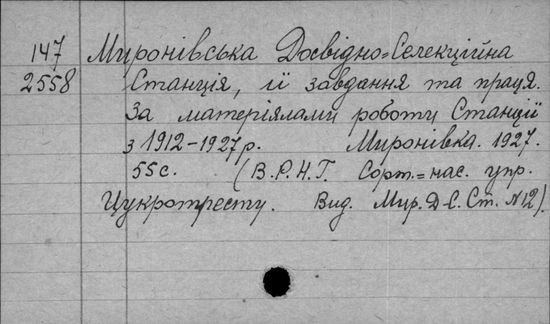 147 Миронівська Досвідно-Селекційна
2558 Станція, її завдання та праця.
За матеріялами роботи Станції
з 1912-1927 р. Миронівка. 1927.
55 с. (В.Р.Н.Г. Сорт.=нас. упр.
Цукротресту. Вид. Мир. Д-С. Ст. №12).